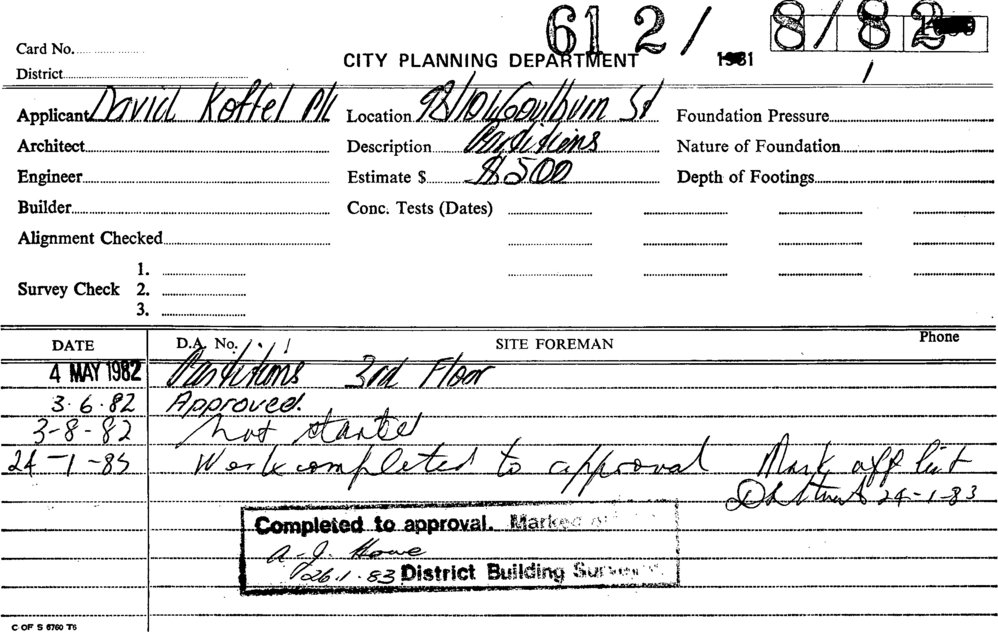 612/ 8/82
Card No.
CITY PLANNING DEPARTMENT 1981
District
Applicant David Koffel P/L Location 98/104 Goulburn St Foundation Pressure
Architect Description Partitions Nature of Foundation
Engineer Estimate $ $500 Depth of Footings
Builder Conc. Tests (Dates)
Alignment Checked
1.
Survey Check 2.
3.
DATE D.A. No. SITE FOREMAN Phone
4 MAY 1982 Partitions 3rd Floor
3.6.82 Approved.
3-8-82 Not started
24-1-83 Work completed to approval Mark off list
24-1-83
Completed to approval. Marked
A.J. Howe
26.1.83 District Building Surveyor
C OF S 6760 T6